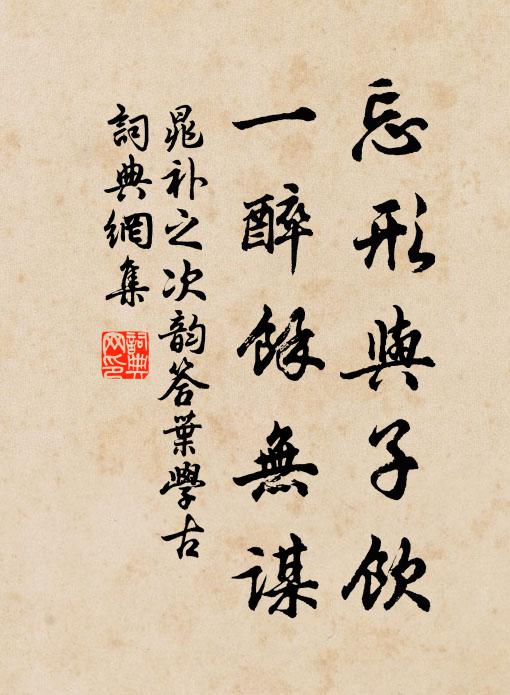 忘形與子飲
一醉餘無謀
晁補之次韵答葉學古
詞典網集
詞典
网印